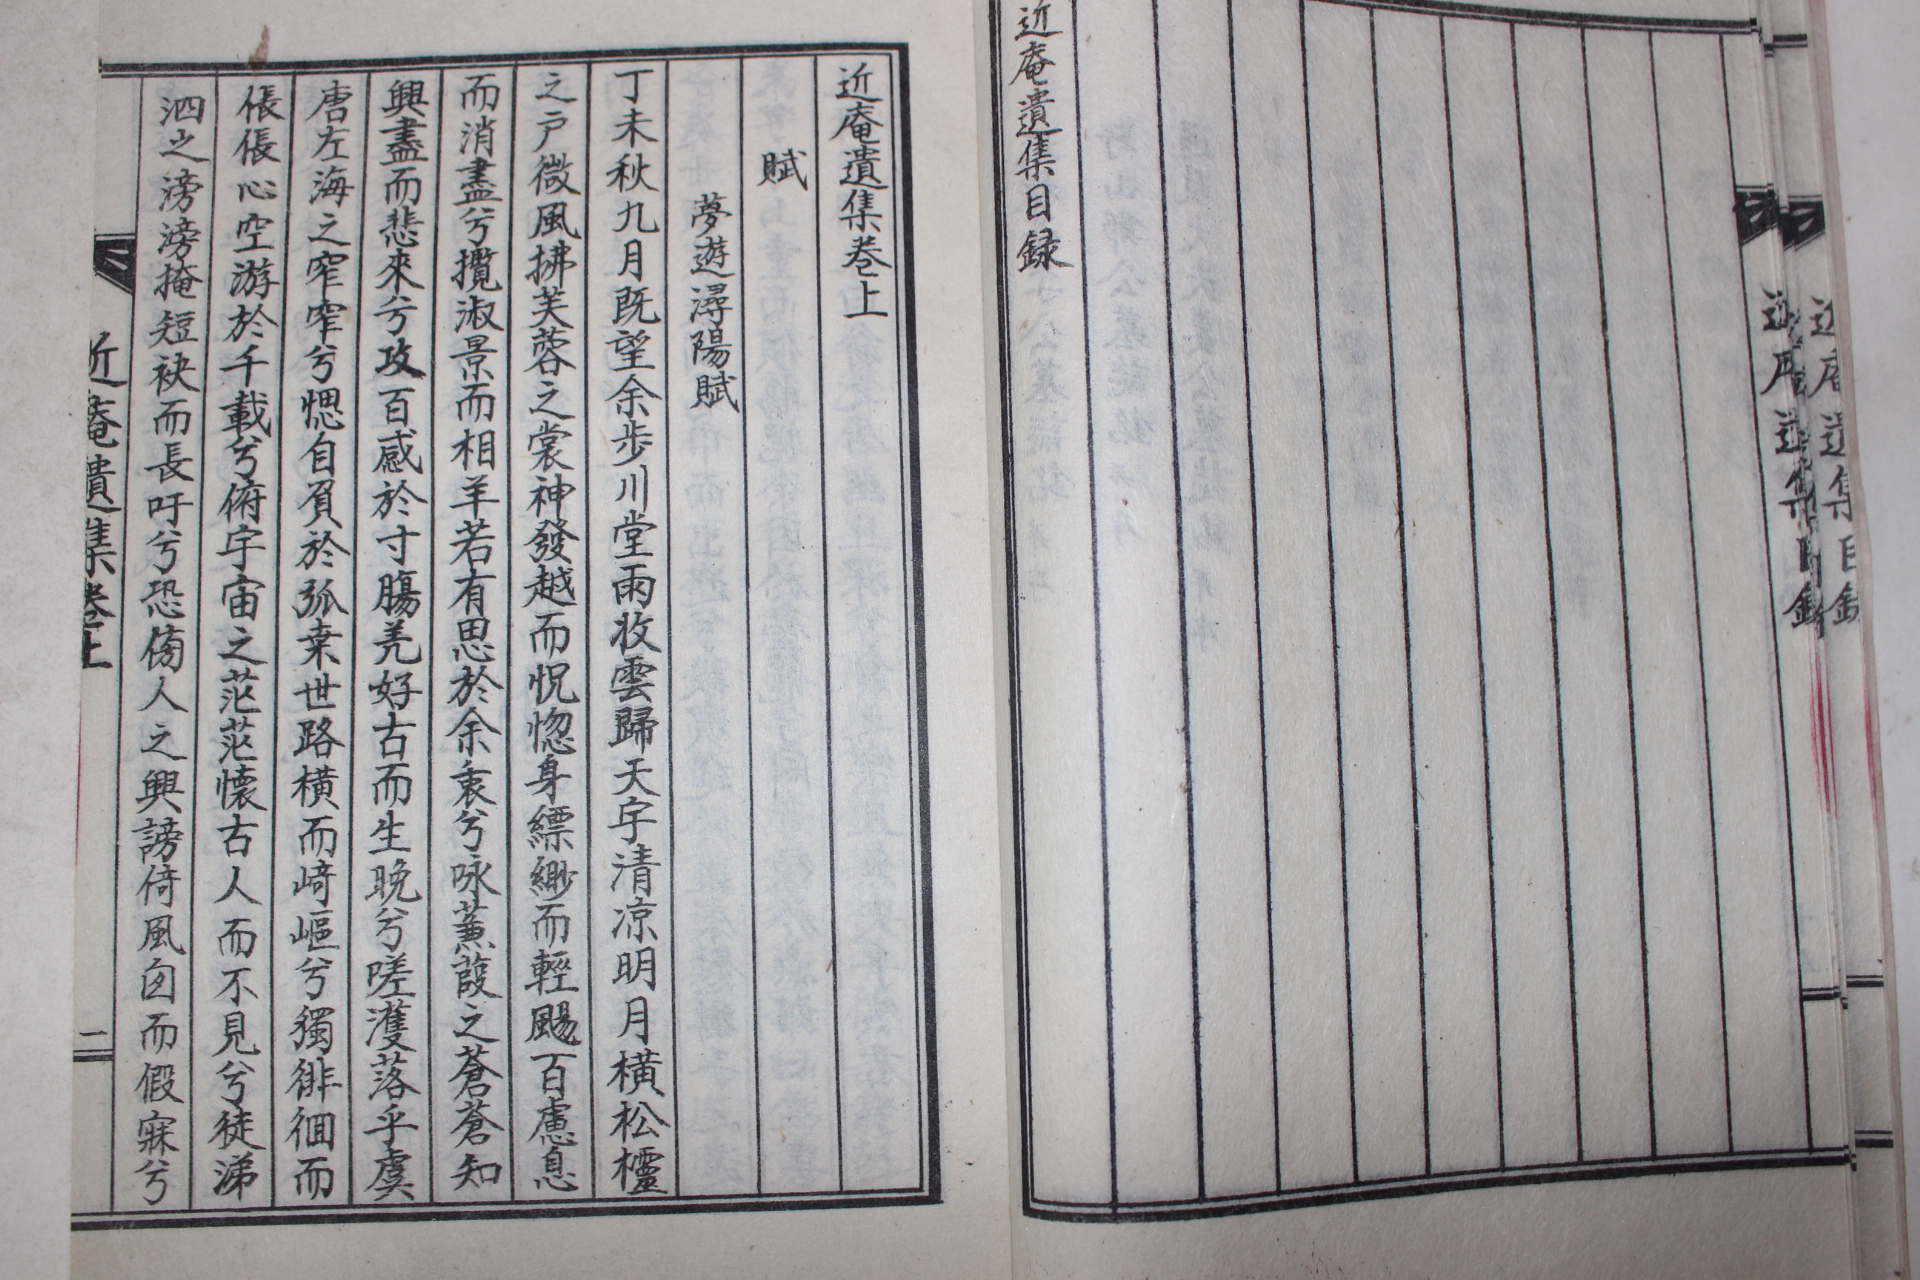 近庵遺集目録
近庵遺集卷上
賦
夢遊潯陽賦
丁未秋九月既望余步川堂雨收雲歸天宇清凉明月橫松櫺
之戶微風拂芙蓉之裳神發越而怳惚身縹緲而輕颺百慮息
而消盡兮攬淑景而相羊若有思於余衷兮咏蒹葭之蒼蒼知
興盡而悲來兮攻百感於寸腸羌好古而生晚兮嗟濩落乎虞
唐左海之窄窄兮愢自負於弧桒世路橫而崎嶇兮獨徘徊而
倀倀心空游於千載兮俯宇宙之茫茫懷古人而不見兮徒涕
泗之滂滂掩短袂而長吁兮恐傍人之興謗倚風囪而假寐兮
近庵遺集卷上
一
近庵遺集目録